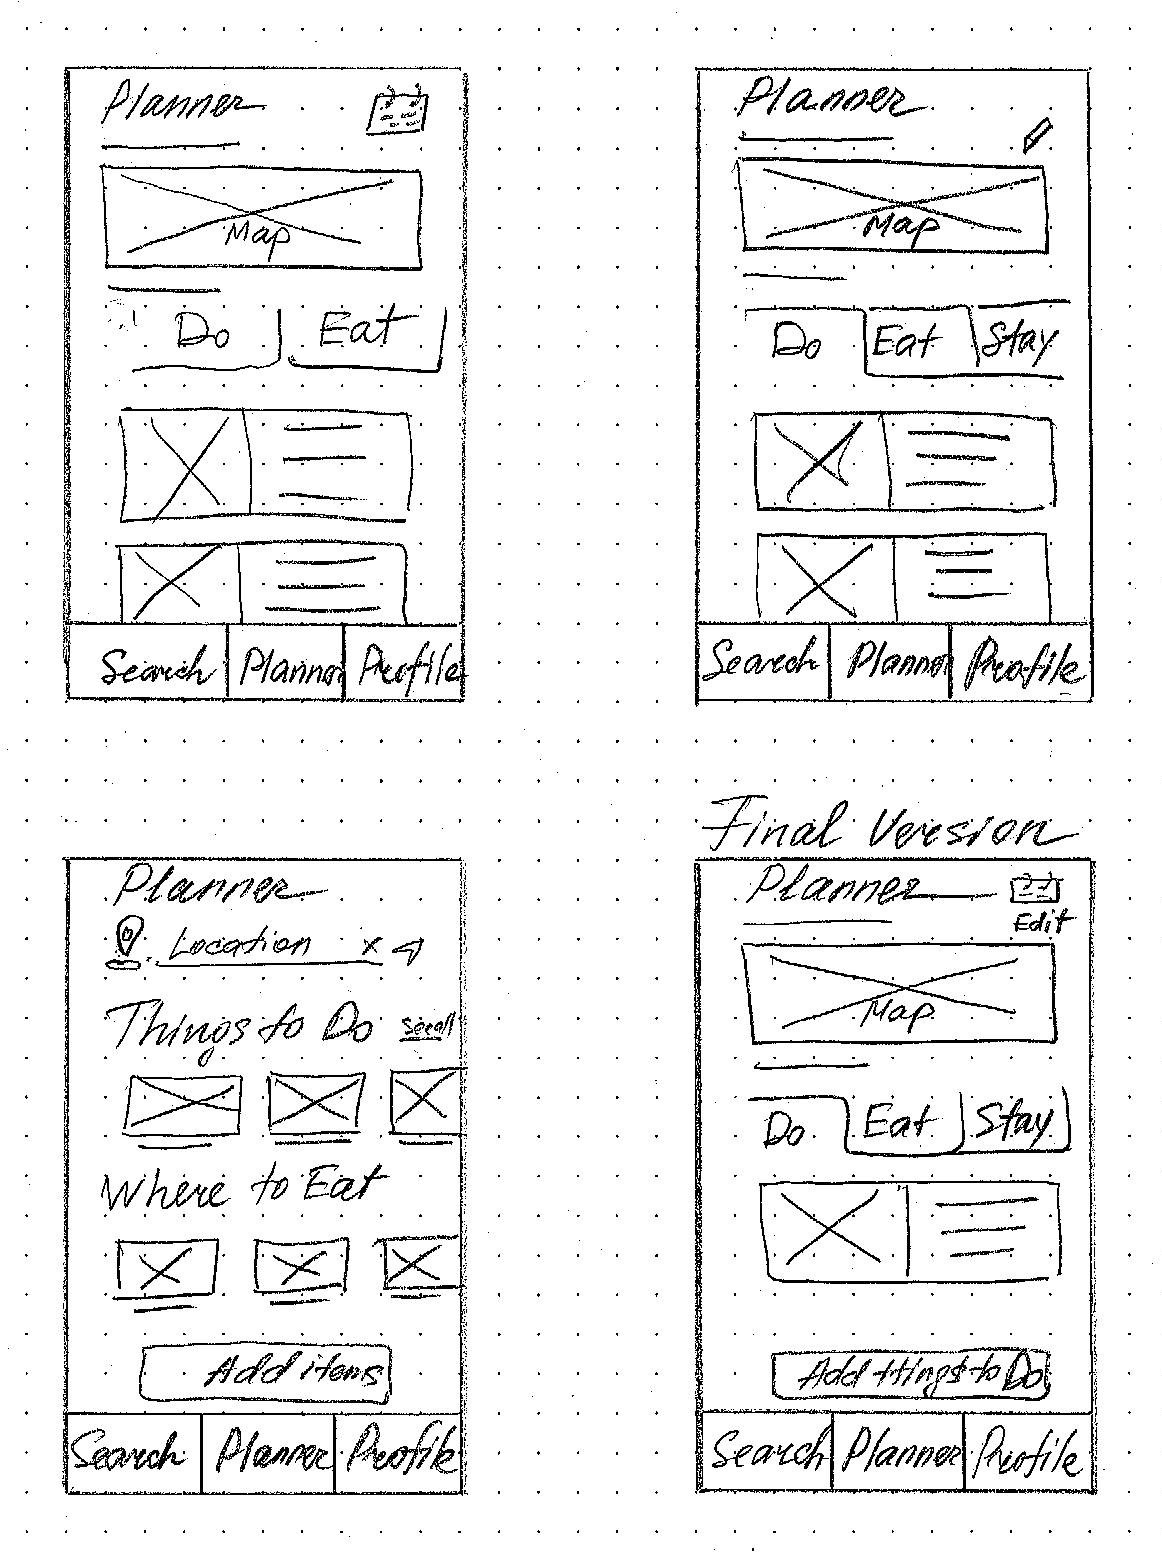 Planner
Map
Do Eat
Search Planner Profile
Planner
Map
Do Eat Stay
Search Planner Profile
Planner
Location x
Things to Do Scroll
Where to Eat
Add items
Search Planner Profile
Final Version
Planner
Edit
Map
Do Eat Stay
Add things to Do
Search Planner Profile